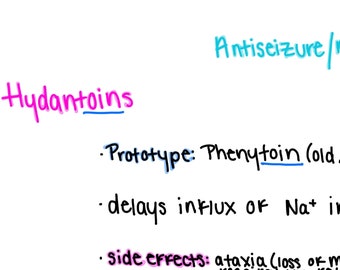 Antiseizure/
Hydantoins
· Prototype: Phenytoin (old
· delays influx of Na⁺
· side effects: ataxia (loss of